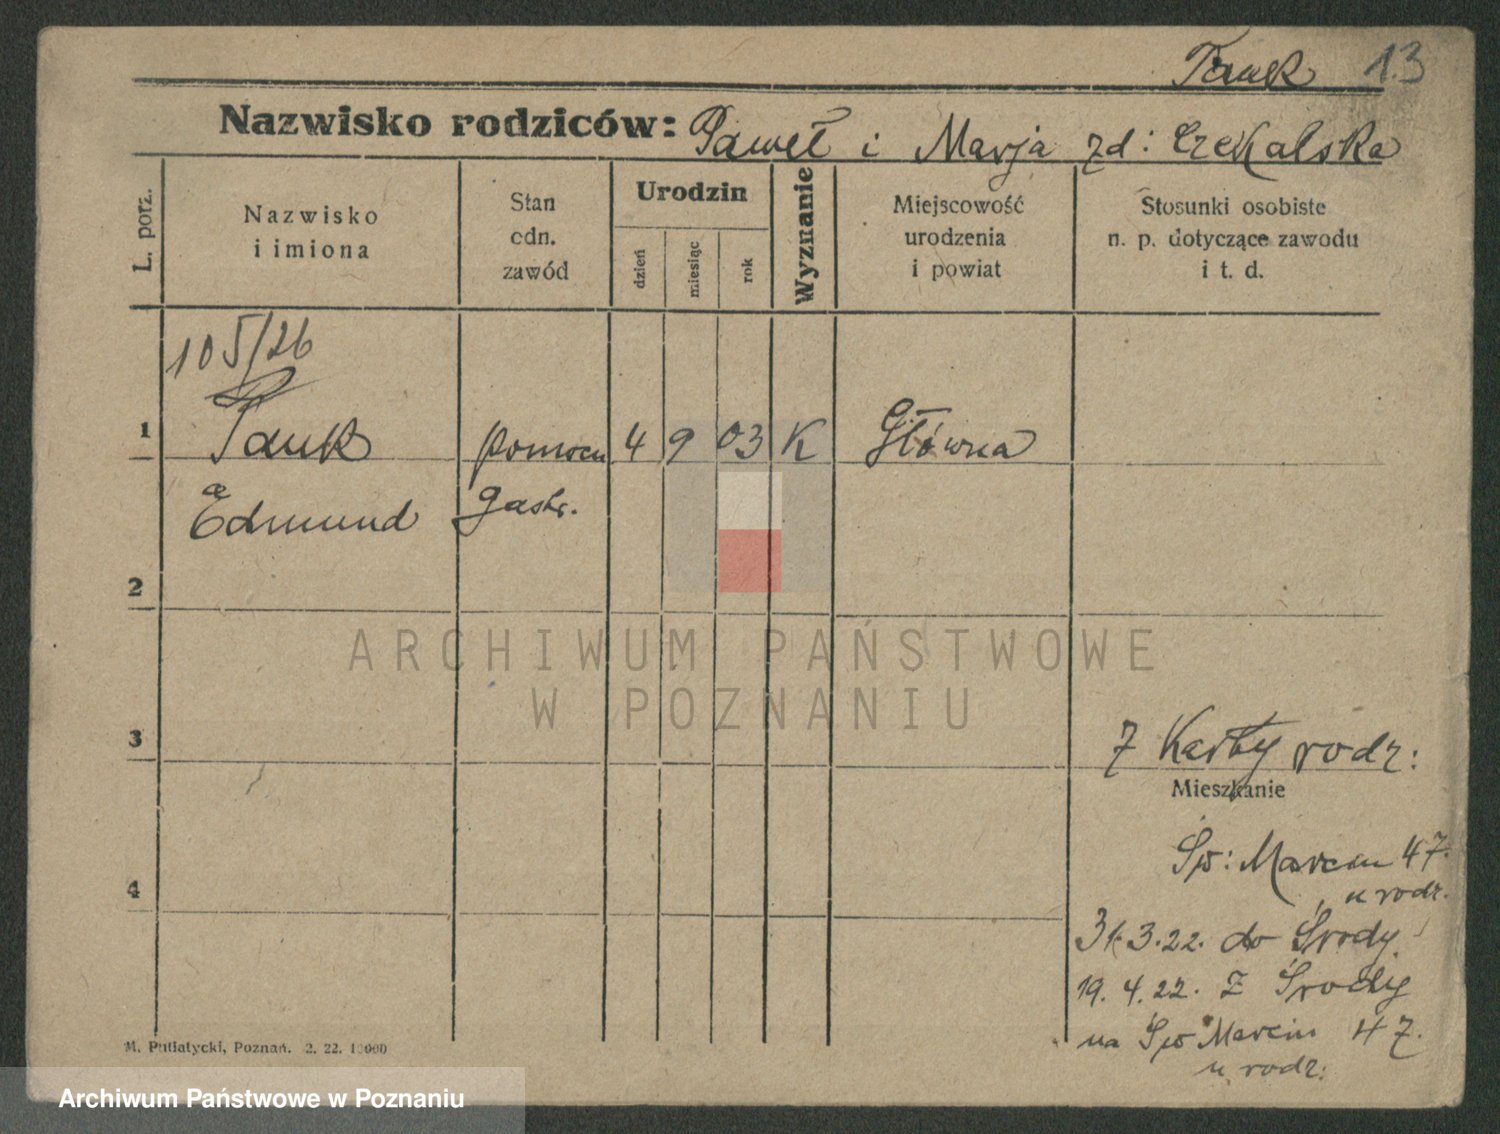 Pauk 13
Nazwisko rodziców: Paweł i Marja zd: Czekalska
L. porz.
Nazwisko
i imiona
Stan
edn.
zawód
Urodzin
dzień
miesiąc
rok
Wyznanie
Miejscowość
urodzenia
i powiat
Stosunki osobiste
n. p. dotyczące zawodu
i t. d.
105/26
1 Pauk pomocn 4 9 03 K Główna
Edmund gastr.
2
ARCHIWUM PAŃSTWOWE
W POZNANIU
3
Z Karty rodz:
Mieszkanie
Św: Marcin 47.
u rodz.
4
31.3.22. do Środy
19. 4. 22. Z Środy
na Św Marcin 47.
u rodz:
M. Putiatycki, Poznań. 2. 22. 10000
Archiwum Państwowe w Poznaniu